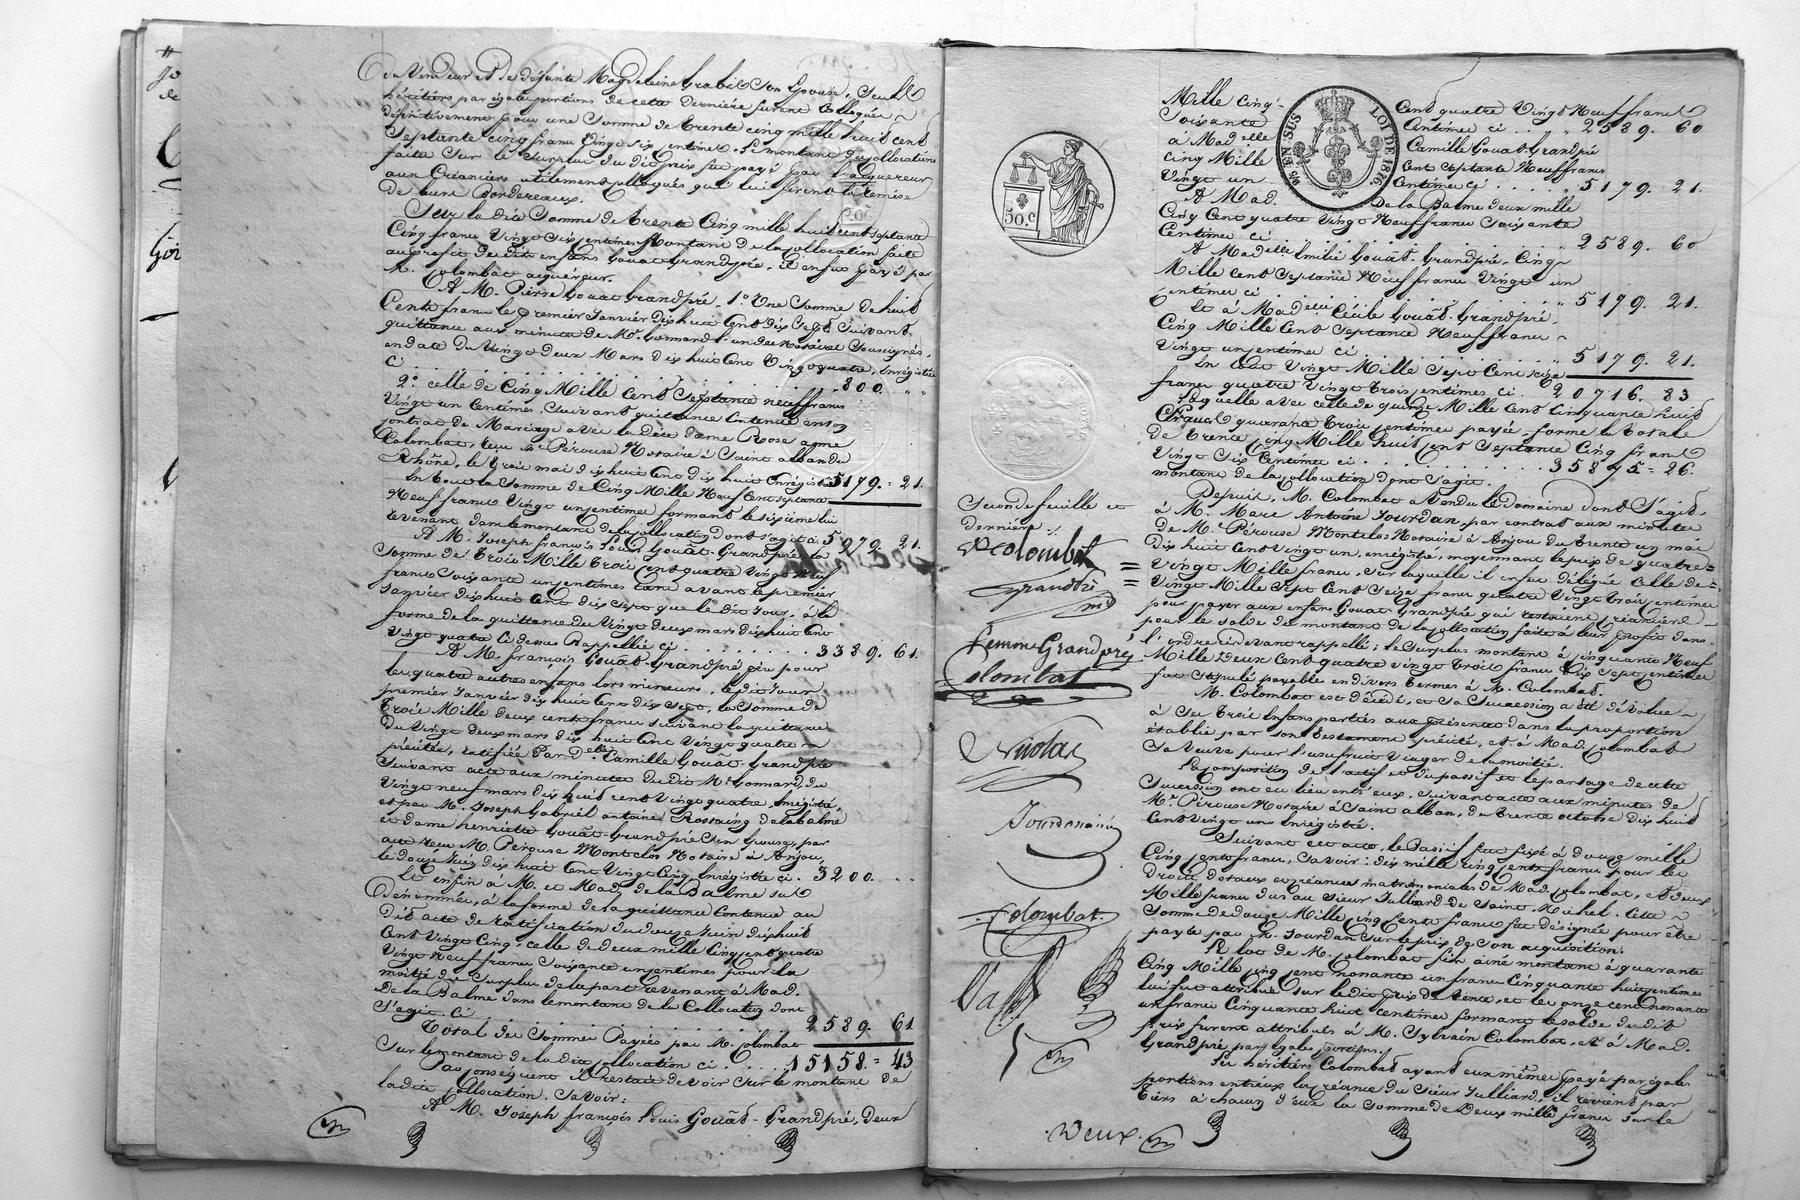 du Vendeur et de défunte Magdeleine Grabit son Epouse, seuls
héritiers par égales portions de cette dernière furent colloqués
définitivement pour une somme de trente cinq mille huit cent
septante cinq francs vingt six centimes. Le montant des collocations
faites sur le surplus du dit prix fut payé par l'acquéreur
aux Créanciers utilement colloqués qui lui firent la remise
de leurs Bordereaux.
Sur la dite somme de trente cinq mille huit cent septante
cinq francs vingt six centimes montant de la collocation faite
au profit des dits enfans Gouat-Grandpré, il en fut payé par
M. Colombat acquéreur.
A M. Pierre Gouat Grandpré, 1° Une somme de huit
Cents francs le premier Janvier dix huit cent dix sept suivant
quittance aux minutes de Me Gonnard l'un des Notaires soussignés,
en date du vingt deux Mars dix huit cent vingt quatre, Enregistrée
ci . . . . . . . . . . . . . . . 800. " "
2° celle de Cinq Mille cent septante neuf francs
vingt un centimes, suivant quittance contenue en son
contrat de Mariage avec la dite dame Rose agnes
Colombat, reçu Me Pérouse Notaire à Saint alban du
Rhône, le trois mai dix huit cent dix huit Enregistré 5179. = 21.
En tout la somme de Cinq Mille Neuf Cent septante
Neuf francs vingt un centimes formant le sixième lui
revenant dans le montant de la collocation dont s'agit ci 5979. 21.
A M. Joseph françois Louis Gouat-Grandpré la
somme de Trois Mille trois cent quatre vingt neuf
francs soixante un centimes tant avant le premier
Janvier dix huit cent dix sept que le dit jour, à la
forme de la quittance du vingt deux mars dix huit cent
vingt quatre ci dessus Rappellée ci . . . . . . 3389. 61.
A M. françois Gouat-Grandpré père pour
les quatre autres enfans lors mineurs, le dit jour
premier Janvier dix huit cent dix sept, la somme de
Trois Mille deux cents francs suivant la quittance
du vingt deux mars dix huit cent vingt quatre
précitée, ratifiée Par Delle Camille Gouat-Grandpré
suivant acte aux minutes du dit Me Gonnard, du
vingt neuf mars dix huit cent vingt quatre, Enregistré,
et par M. Joseph Gabriel antoine Rostaing de la balme
et dame henriette Gouat Grandpré son Epouse, par
acte reçu M. Perouse Montclos Notaire à Anjou,
le douze Juin dix huit Cent Vingt Cinq, Enregistré ci. 3200. " "
Et enfin à M. et Mad. de la Balme sus
Dénommés, à la forme de la quittance Contenue au
Dit acte de ratification du douze Juin dix huit
Cent Vingt Cinq, celle de deux mille Cinq cent quatre
Vingt Neuf francs soixante un centimes pour la
moitié de surplus de la part revenant à Mad.
De la Balme dans le montant de la Collocation dont
s'agit. Ci . . . . . . . . . . . 2589. 61.
Total des sommes Payées par M. Colombat
sur le montant de la dite collocation ci . . . . 15158. = 43
au conséquent il restait devoir sur le montant de
la dite collocation, Savoir:
A M. Joseph françois Louis Gouat-Grandpré, Deux
Mille Cinq Cent quatre Vingt Neuf francs
Soixante Centimes ci . . . " 2589. 60
à Madelle Camille Gouat Grandpré
Cinq Mille Cent Septante Neuf francs
Vingt un Centimes ci . . . . . " 5179. 21.
A Mad. De la Balme deux mille
Cinq Cent quatre Vingt Neuf francs soixante
Centimes ci . . . . . . . . . . . " 2589. 60
A Madelle Emilie Gouat-Grandpré, Cinq
Mille Cent Septante Neuf francs Vingt un
Centimes ci . . . . . . . . . . . " 5179. 21.
Et à Madelle Cécile Gouat-Grandpré,
Cinq Mille Cent Septante Neuf francs
Vingt un centimes ci . . . . . . . " 5179. 21.
En tout Vingt Mille Sept Cent seize
francs quatre vingt trois centimes ci. 20716. 83
Laquelle avec celle de quinze Mille Cent Cinquante huit
francs quarante trois centimes payée forme la totale
de trente cinq Mille huit cent septante Cinq francs
vingt six Centimes ci . . . . . . . 35875 = 26.
montant de la collocation dont s'agit.
Depuis, M. Colombat a Vendu le domaine dont s'agit,
à M. Marc Antoine Jourdan, par contrat aux minutes
de Me Pérouse Montclos Notaire à Anjou du trente un mai
Dix huit Cent vingt un, enregistré, moyennant le prix de quatre =
= Vingt Mille francs, sur laquelle il en fut délégué celle de =
= Vingt Mille Sept Cent Seize francs quatre Vingt trois centimes
pour payer aux enfans Gouat Grandpré qui restoient créanciers
pour le solde du montant de la collocation faite à leur profit dans
l'ordre ci devant rappellé; le surplus montant à cinquante Neuf
Mille deux Cent quatre vingt trois francs dix sept centimes
fut stipulé payable en divers termes à M. Colombat.
M. Colombat est décédé, et sa succession a été dévolue
à ses trois Enfans parties aux présentes dans la proportion
établie par son testament précité, et à Mad. Colombat
sa Veuve pour l'usufruit Viager de la moitié.
La composition de l'actif et du passif et le partage de cette
Succession ont eu lieu entr'eux, suivant acte aux minutes de
Me Pérouse Notaire à Saint alban, du trente octobre dix huit
Cent vingt un Enregistré.
Suivant cet acte, le Passif fut fixé à douze mille
Cinq cents francs, savoir: dix mille cinq cents francs pour les
droits dotaux et créances matrimoniales de Mad. Colombat, et deux
Mille francs dus au sieur Julliard de Saint Michel. Cette
somme de douze Mille cinq cents francs fut désignée pour être
payée par M. Jourdan sur le prix de son acquisition.
Le lot de M. Colombat fils ainé montant à quarante
Cinq Mille cinq cent nonante un francs Cinquante huit centimes
lui fut attribué sur le dit prix de vente, et les onze cent nonante
un francs Cinquante huit centimes formant le solde du dit
prix furent attribués à M. Sylvain Colombat, et à Mad.
Grandpré par égales portions.
Les héritiers Colombat ayant eux mêmes payé par égales
portions entr'eux la créance du Sieur Julliard, il revient par
tiers à chacun d'eux la somme de deux mille francs sur le
5/6 EN SUS
LOI DE 1816.
50.c
Seconde feuille et
dernière ./.
Colombat
Grandpré
Femme Grandpré
Colombat
Nicolas
Jourdan
Colombat
Deux